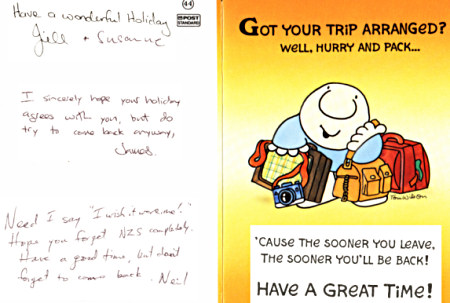 Have a wonderful Holiday
Jill + Susanne
44
POST
STANDARD
I sincerely hope your holiday
agrees with you, but do
try to come back anyway,
James.
Need I say "I wish it were me!"
Hope you forget NZS completely.
Have a good time, but don't
forget to come back. Neil
GOT YOUR TRIP ARRANGED?
WELL, HURRY AND PACK...
Tom Wilson
'CAUSE THE SOONER YOU LEAVE,
THE SOONER YOU'LL BE BACK!
HAVE A GREAT TIME!